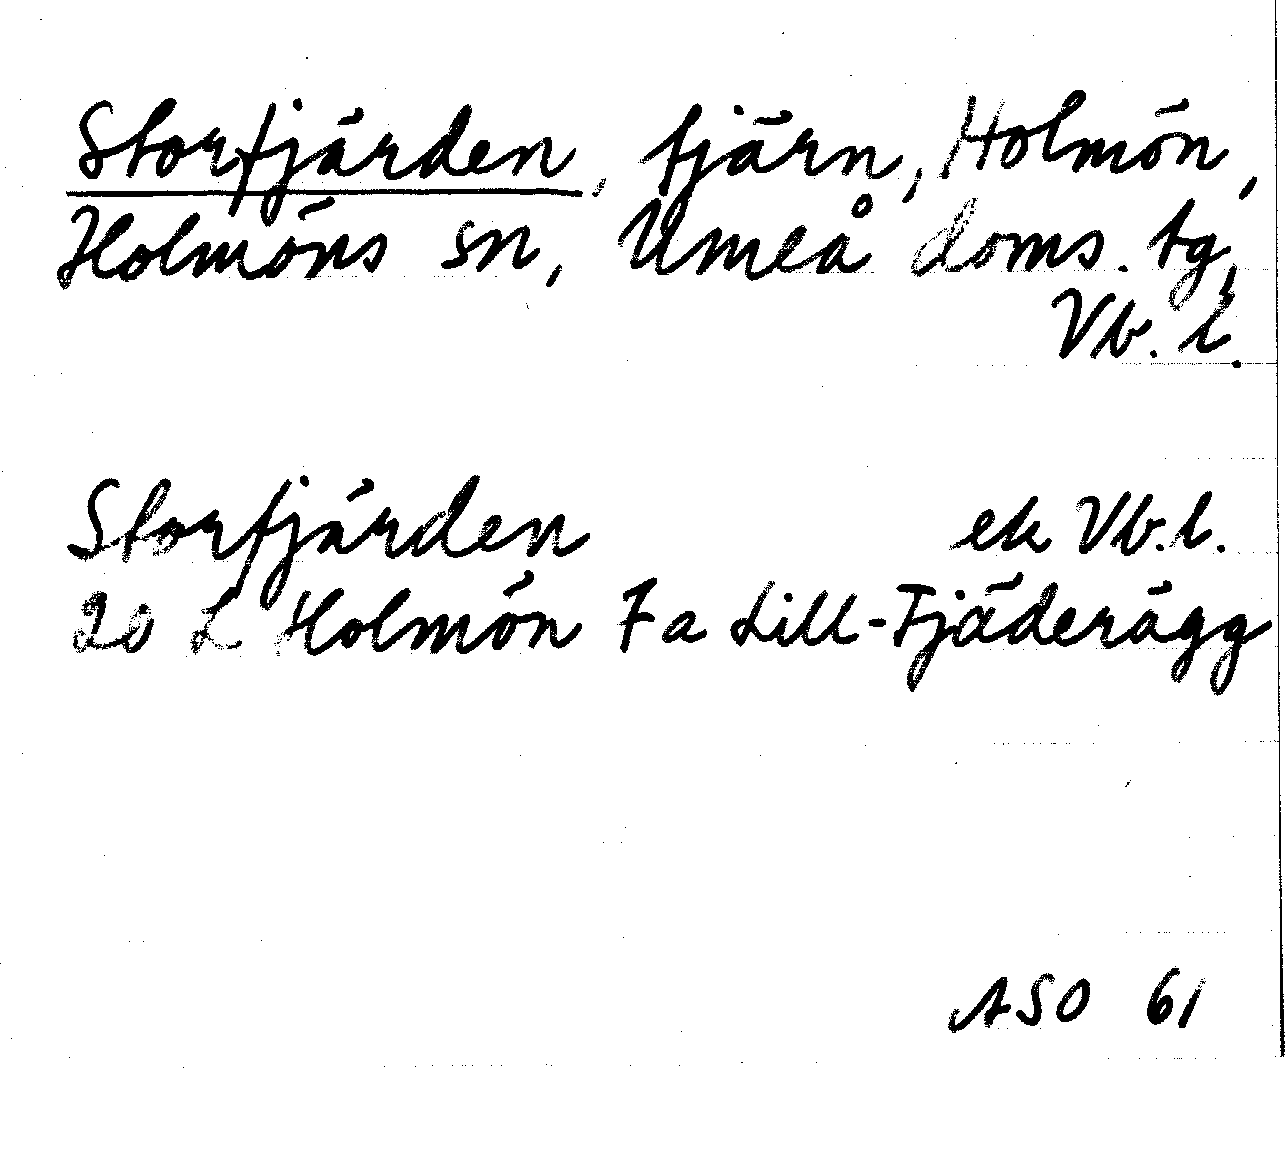 Storfjärden, tjärn, Holmön,
Holmöns sn, Umeå doms. tg,
Vb. l.
Storfjärden ek Vb. l.
20 L Holmön 7 a Lill-Fjäderägg
ASO 61